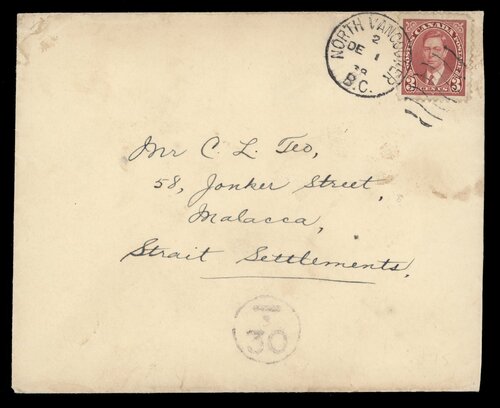 NORTH VANCOUVER
2
DE 1
38
B.C.
POSTES CANADA POSTAGE
3 CENTS 3
Mr C. L. Teo,
58, Jonker Street,
Malacca,
Strait Settlements.
T
30